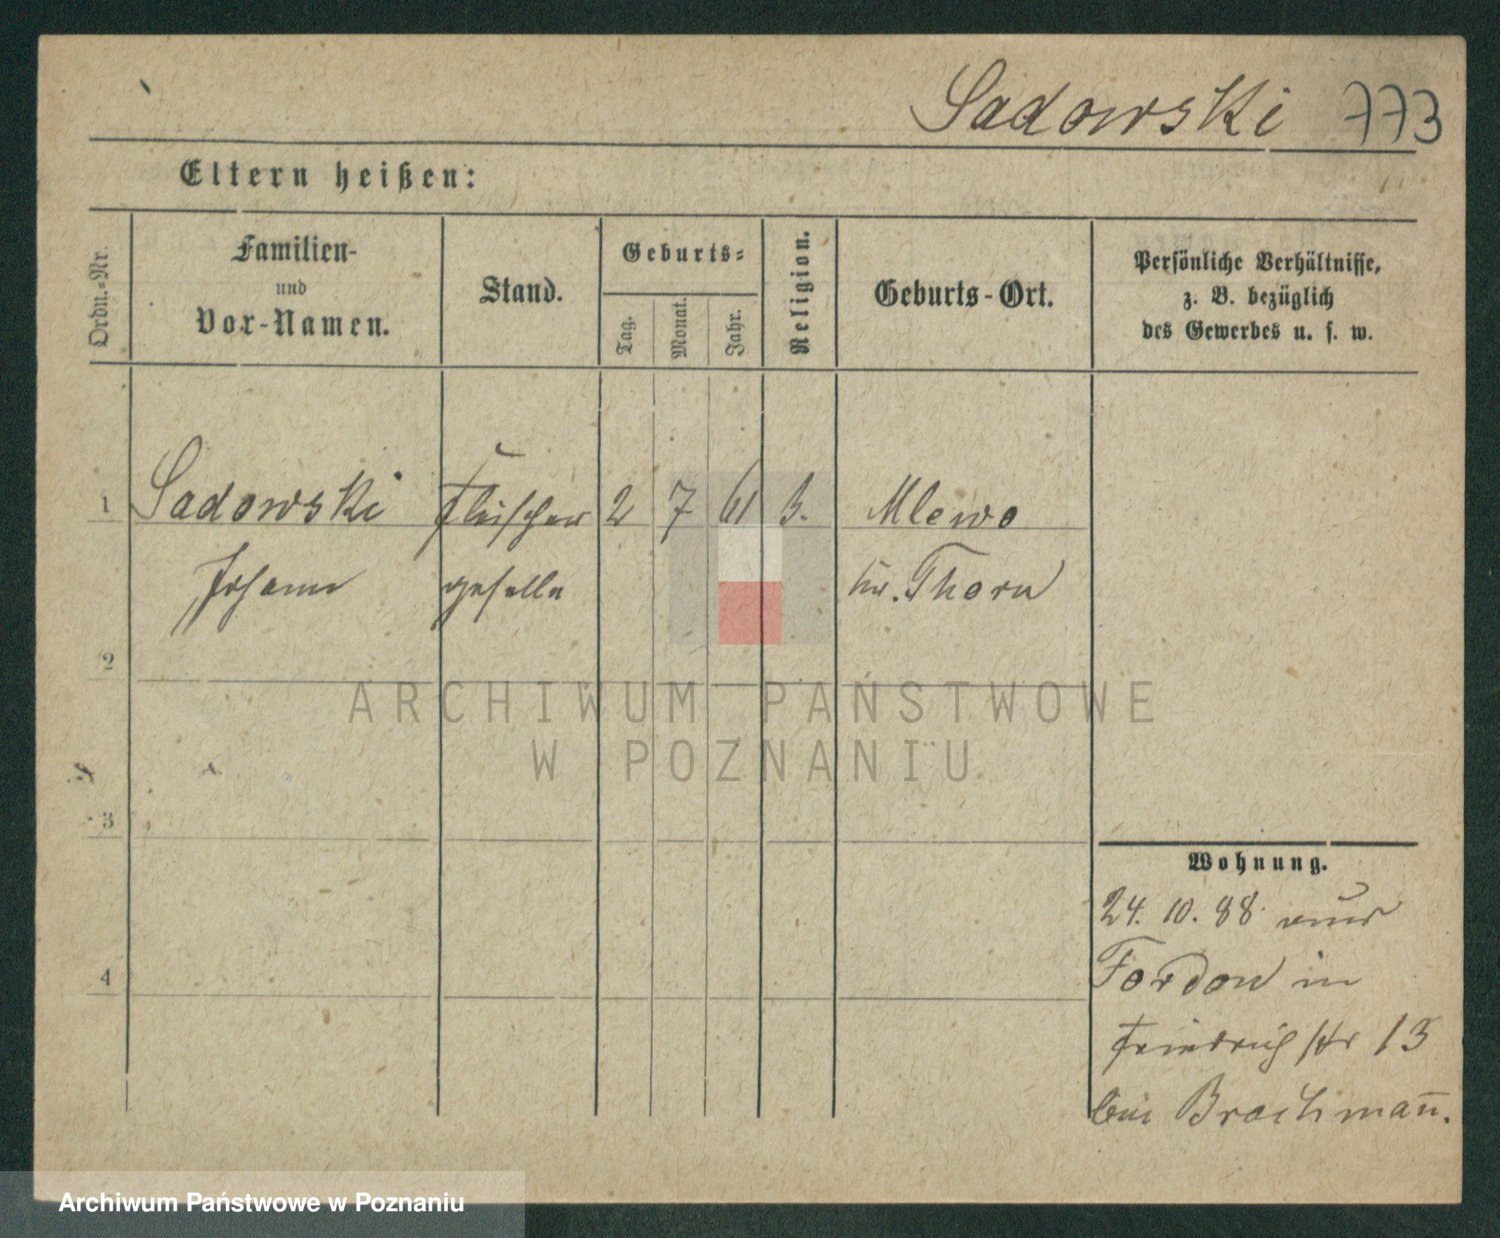 Sadowski 773
Eltern heißen:
Ordn.-Nr.
Familien-
und
Vor-Namen.
Stand.
Geburts-
Tag.
Monat.
Jahr.
Religion.
Geburts-Ort.
Persönliche Verhältnisse,
z. B. bezüglich
des Gewerbes u. s. w.
1 Sadowski Fleischer 2 7 61 Mlewo
Johann geselle Thorn
2
3
4
ARCHIWUM PAŃSTWOWE
W POZNANIU
Wohnung.
24. 10. 88 aus
Fordon in
Friedrichstr 13
bei Brachman̅.
Archiwum Państwowe w Poznaniu